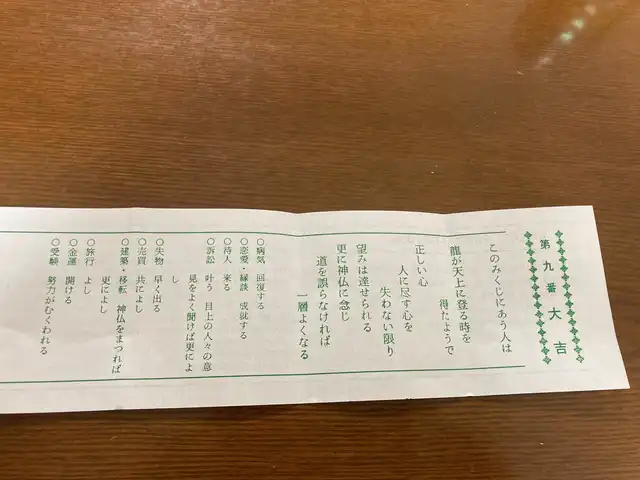 第九番 大吉
このみくじにあう人は
龍が天上に登る時を
得たようで
正しい心
人に尽す心を
失わない限り
望みは達せられる
更に神仏に念じ
道を誤らなければ
一層よくなる
○病気 回復する
○恋愛・縁談 成就する
○待人 来る
○訴訟 叶う 目上の人々の意
見をよく聞けば更によ
し
○失物 早く出る
○売買 共によし
○建築・移転 神仏をまつれば
更によし
○旅行 よし
○金運 開ける
○受験 努力がむくわれる